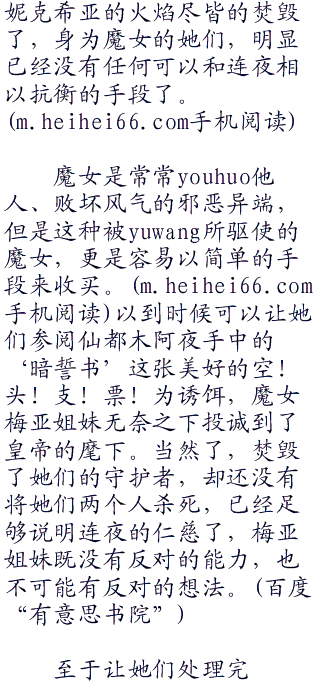 妮克希亚的火焰尽皆的焚毁
了，身为魔女的她们，明显
已经没有任何可以和连夜相
以抗衡的手段了。
(m.heihei66.com手机阅读)
魔女是常常youhuo他
人、败坏风气的邪恶异端，
但是这种被yuwang所驱使的
魔女，更是容易以简单的手
段来收买。(m.heihei66.com
手机阅读)以到时候可以让她
们参阅仙都木阿夜手中的
‘暗誓书’这张美好的空！
头！支！票！为诱饵，魔女
梅亚姐妹无奈之下投诚到了
皇帝的麾下。当然了，焚毁
了她们的守护者，却还没有
将她们两个人杀死，已经足
够说明连夜的仁慈了，梅亚
姐妹既没有反对的能力，也
不可能有反对的想法。(百度
“有意思书院”)
至于让她们处理完